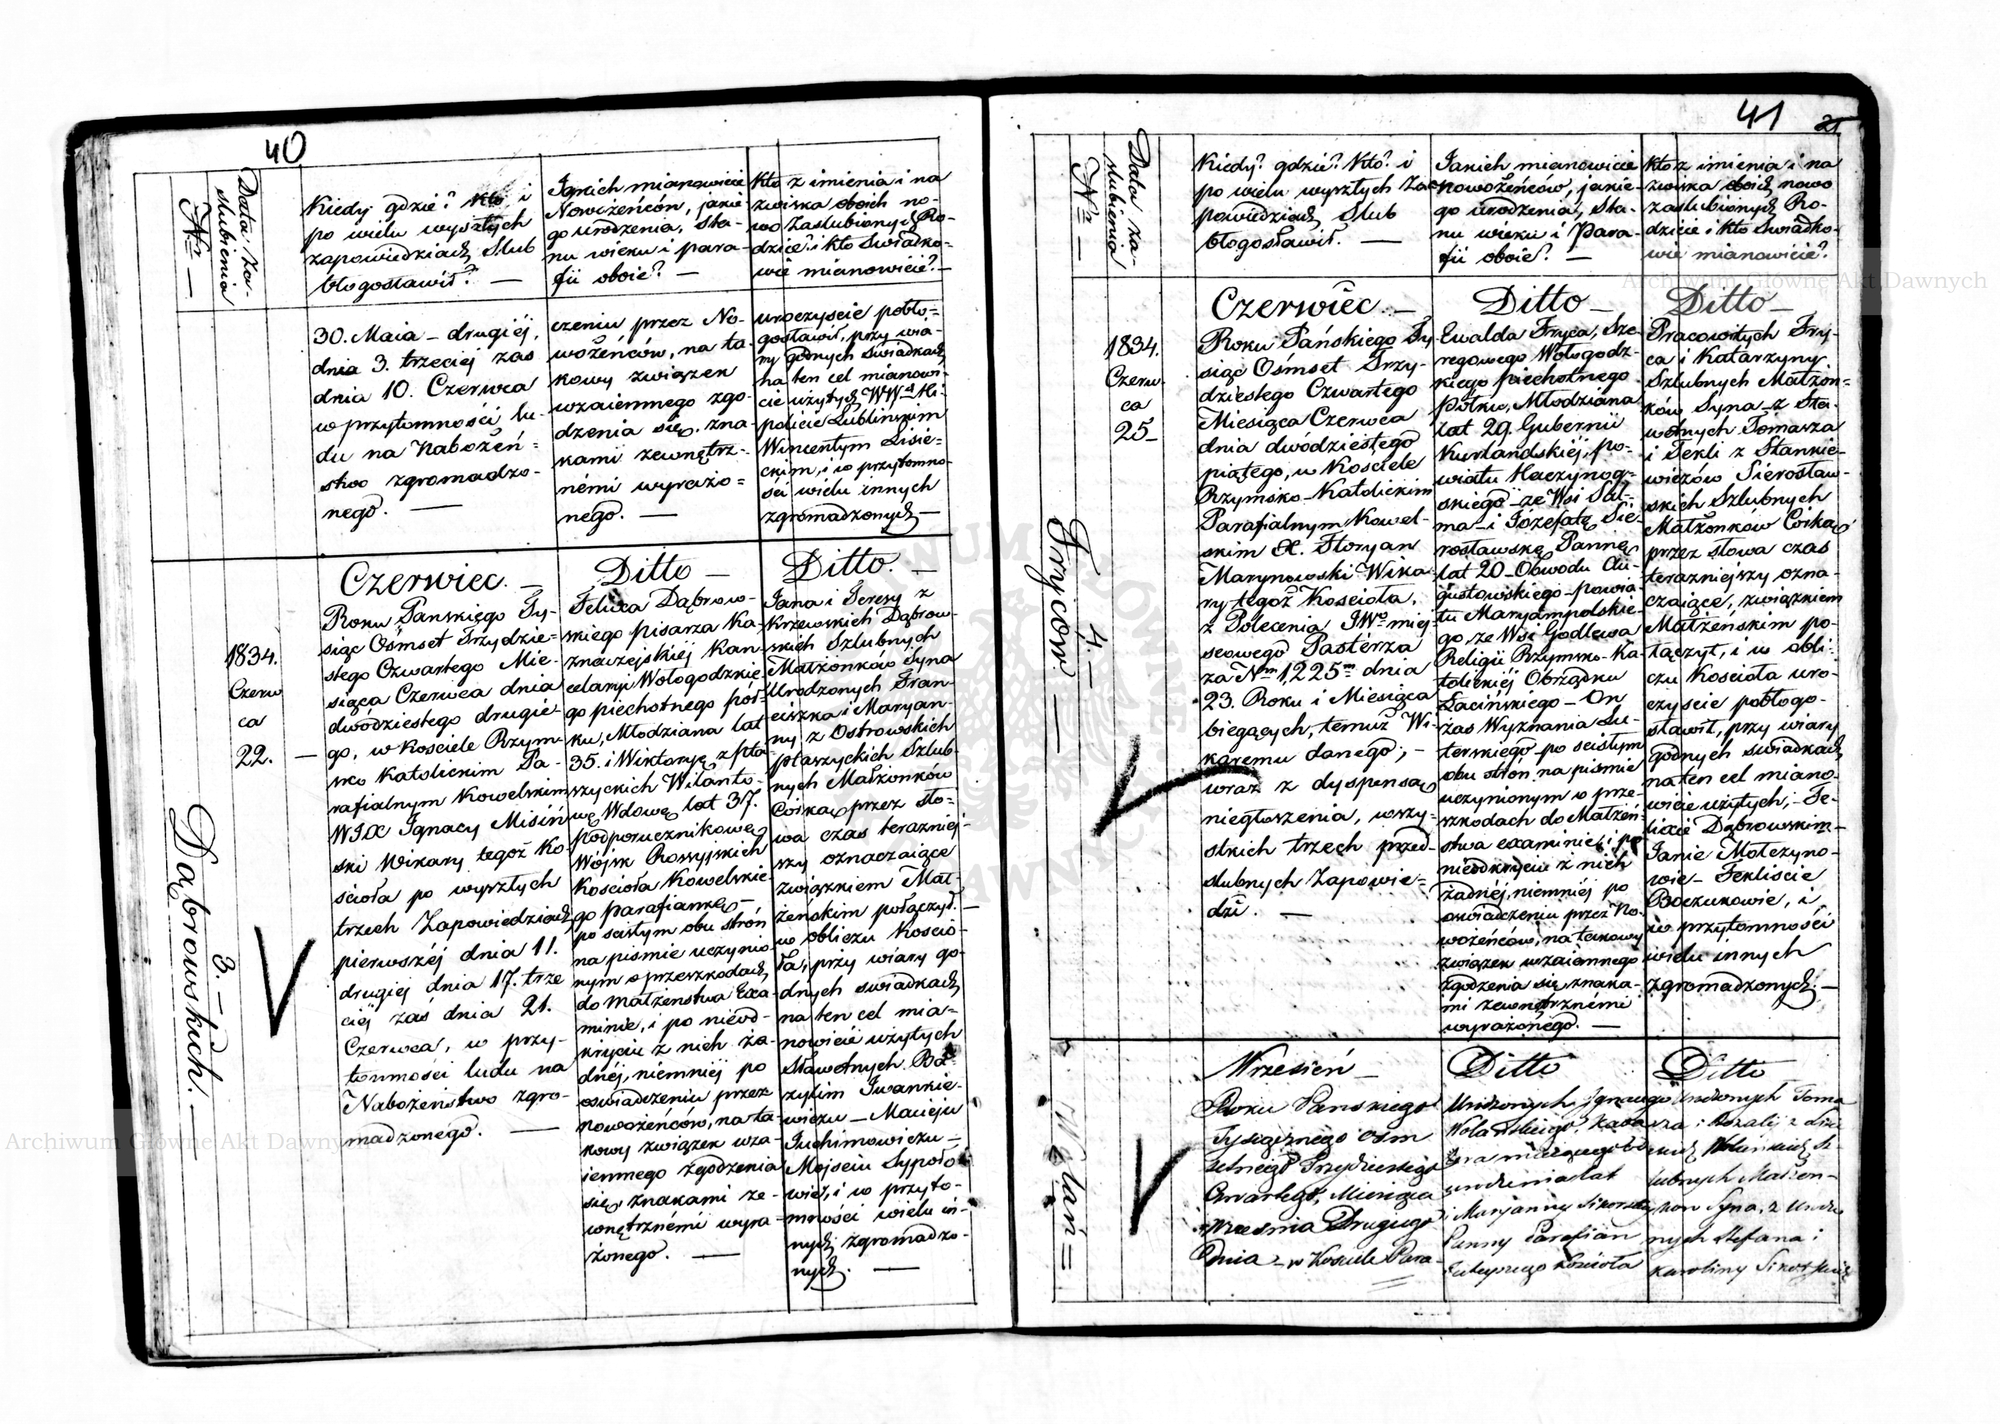 40
Nro —
Data. za-
slubienia
Kiedy gdzie? Kto i
po wielu wyszłych
zapowiedziach Slub
błogosławił? —
Jakich mianowicie
Nowożeńców, jakie
go urodzenia, Sta-
nu wieku i para-
fii oboie? —
Kto z imienia i na
zwiska oboich no-
wo Zaslubionych Ro-
dzice? i kto Swiadko-
wie mianowicie? —
30. Maia — drugiéj,
dnia 3. trzeciej zaś
dnia 10. Czerwca
w przytomności lu-
du na Nabożeń-
stwo zgromadzo-
nego. —
czeniu przez No-
wożeńców, na ta-
kowy związek
wzaiemnego zgo-
dzenia się, zna-
kami zewnętrz-
némi wyrażo-
nego. —
uroczyscie pobło-
gosławił, przy wia-
ry godnych Swiadkach
na ten cel mianowi-
cie użytych WW. Hi-
policie Lublinskim
Wincentym Lisie-
ckim, i w przytomno-
ści wielu innych
zgromadzonych —
1834.
Czerw
ca
22. —
3. —
Dąbrowskich. —
Czerwiec. —
Roku Panskiego Ty-
siąc Ośmset Trzydzie-
stego Czwartego Mie-
siąca Czerwca dnia
dwódziestego drugie-
go, w Kosciele Rzym-
sko Katolickim Pa-
rafialnym Kowelskim
WJX Ignacy Misiń-
ski Wikary tegoż Ko-
scioła po wyszłych
trzech Zapowiedziach
pierwszéj dnia 11.
drugiej dnia 17. trze
ciéj zaś dnia 21.
Czerwca, w przy-
tomności ludu na
Nabożenstwo zgro-
madzonego. —
Ditto —
Felixa Dąbrow-
skiego pisarza Ka-
znaczejskiéj Kan-
celaryi Wołogodzkie
go piechotnego pół-
ku, Młodziana lat
35. i Wiktoryę z Pta
szyckich Wilanto-
wę Wdowę lat 37.
Podporucznikowę
Wóysk Rossyjskich
Kościoła Kowelskie-
go parafiankę —
po scisłym obu strón
na pismie uczynio-
nym o przeszkodach
do małżenstwa Exa-
minie, i po nieod-
kryciu z nich ża-
dnéj, niemniéj po
oswiadczeniu przez
nowożeńców, na ta-
kowy związek wza-
iemnego zgodzenia
się, znakami ze-
wnętrznémi wyra-
żonego. —
Ditto. —
Jana i Teresy z
Krzewskich Dąbrow-
skich Szlubnych
Małżonków Syna
Urodzonych Fran-
ciszka i Maryan-
ny z Ostrowskich
Ptaszyckich Szlub-
nych Małżonków
Córkę przez sło-
wa czas teraźniej-
szy oznaczaiące
związkiem Mał-
żenskim połączył. —
w obliczu Koscio-
ła, przy wiary go-
dnych swiadkach
na ten cel mia-
nowicie użytych
Sławetnych Ba-
zylim Iwankie-
wiczu — Macieju
Juchimowiczu —
Mojseiu Sypoło
wie, i w przyto-
mności wielu in-
nych zgromadzo-
nych. —
41
21
Nro —
Data za-
slubienia
Kiedy? gdzie? Kto? i
po wielu wyszłych Za-
powiedziach Slub
błogosławił. —
Jakich mianowicie
nowożeńców, jakie-
go urodzenia, Sta-
nu wieku i Para-
fii oboie? —
kto z imienia i na
zwiska oboich nowo
zaslubionych Ro-
dzice i kto Swiadko-
wie mianowicie?
1834.
Czerw
ca
25 —
4. —
Frycow —
Czerwiec —
Roku Pańskiego Ty-
siąc Ośmset Trzy-
dziestego Czwartego
Miesiąca Czerwca
dnia dwódziestego
piątego, w Kosciele
Rzymsko-Katolickim
Parafialnym Kowel-
skim X. Floryan
Marynowski Wika-
ry tegoż Kosciola,
z Polecenia JWo miej
scowego Pasterza
za Nm 1,225m dnia
23. Roku i Miesiąca
biegących, temuż Wi-
karemu danego, —
wraz z dyspensą
niegłoszenia, wszy-
stkich trzech przed-
slubnych Zapowie-
dzi. —
Ditto —
Ewalda Fryca, Sze-
regowego Wołogodz-
kiego piechotnego
Półku, Młodziana
lat 29. Gubernii
Kurlandskiéj, po-
wiatu Haczynog-
skiego — ze Wsi Sal-
ma — i Józefatę Sie-
rosławskę Pannę
lat 20 — Obwodu Au-
gustowskiego — powia-
tu Maryampolskie-
go, ze Wsi Godlewa
Religii Rzymsko-Ka-
tolickiéj Obrządku
Łacińskiego — On
zaś Wyznania Lu-
terskiego — po scisłym
obu strón na pismie
uczynionym o prze-
szkodach do Małżeń-
stwa examinie, i po
nieodkryciu z nich
żadnéj, niemniéj po
oswiadczeniu przez No-
wożeńców, na takowy
związek wzaiemnego
zgodzenia się, znaka-
mi zewnętrznémi
wyrażonego. —
Ditto —
Pracowitych Fry-
ca i Katarzyny
Szlubnych Małżon-
ków Syna — z Sła-
wetnych Tomasza
i Tekli z Stankie-
wiczów Sierosław-
skich Szlubnych
Małżonków Córkę
przez słowa czas
teraźniejszy ozna-
czaiące, związkiem
Małżenskim po-
łączył, i w obli-
czu Kościoła uro-
czyscie pobłogo-
sławił, przy wiary
godnych swiadkach
na ten cel miano-
wicie użytych, — Fe-
lixie Dąbrowskim —
Janie Motczyno-
wie — Fekliście
Boczukowie, i
w przytomności
wielu innych
zgromadzonych. —
Wolań =
Wrzesień —
Roku Pańskiego
Tysiącznego Osm
setnego Trzydziestego
Czwartego, Miesiąca
Wrzesnia Drugiego
Dnia — w Kosciele Para-
Ditto
Urodzonych Ignacego
Wolańskiego, Kawa
lera
urodzenia lat
i Maryanny Sikorskiey
Panny Parafian
tutejszego Kościoła
Ditto
Urodzonych Toma
sza i Rozalij z
Wolańskich S-
lubnych Małżon-
kow Syna, z Urodzo
nych Stefana i
Karoliny Sikorskich
Archiwum Główne Akt Dawnych
Archiwum Główne Akt Dawnych
ARCHIWUM GŁÓWNE AKT DAWNYCH